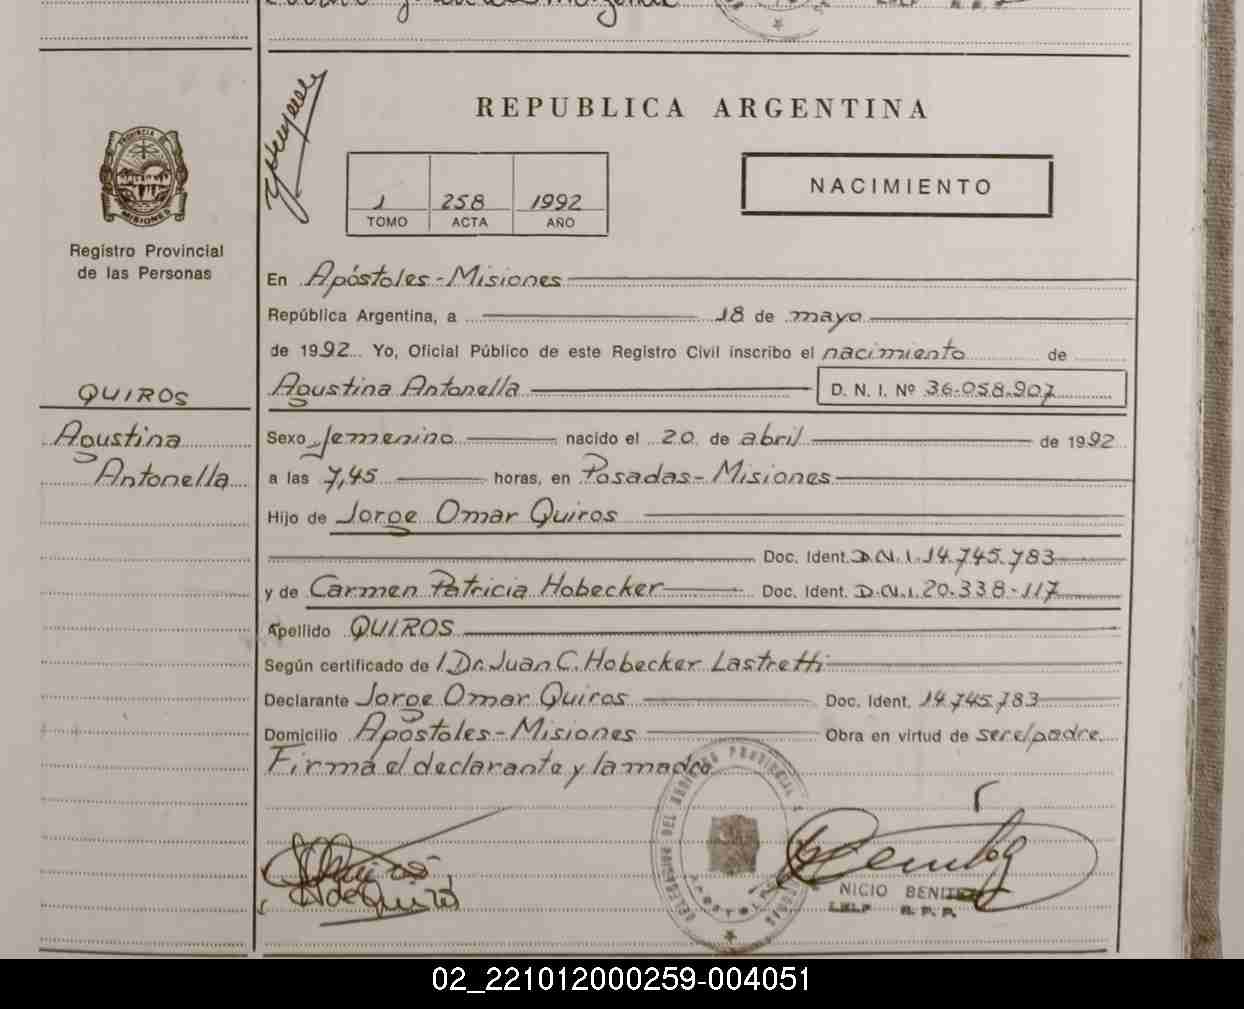 REPUBLICA ARGENTINA
PROVINCIA DE
MISIONES
Registro Provincial
de las Personas
1 258 1992
TOMO ACTA AÑO
NACIMIENTO
En Apóstoles-Misiones
República Argentina, a 18 de mayo
de 1992 Yo, Oficial Público de este Registro Civil inscribo el nacimiento de
QUIROS
Agustina Antonella D. N. I. Nº 36.058.907
Agustina
Antonella
Sexo femenino nacido el 20 de abril de 1992
a las 7,45 horas, en Posadas-Misiones
Hijo de Jorge Omar Quiros
Doc. Ident. D.N.I. 14.745.783
y de Carmen Patricia Hobecker Doc. Ident. D.N.I. 20.338.117
Apellido QUIROS
Según certificado de / Dr. Juan C. Hobecker Lastretti
Declarante Jorge Omar Quiros Doc. Ident. 14.745.783
Domicilio Apóstoles-Misiones Obra en virtud de ser el padre
Firma el declarante y la madre
NICIO BENITEZ
02_221012000259-004051